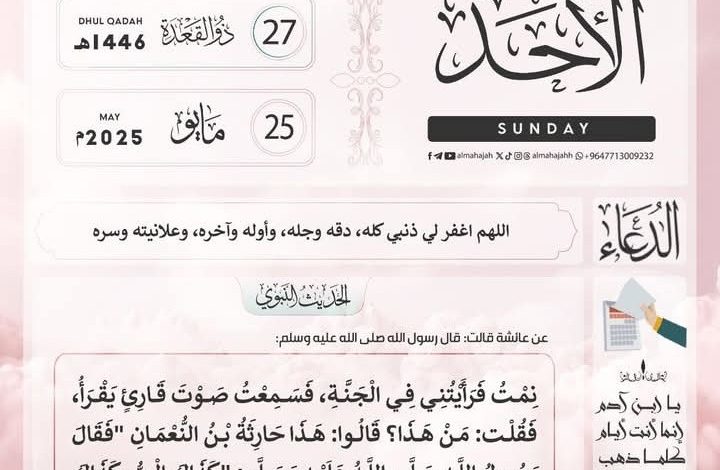 الأحد
SUNDAY
almahajah almahajahh +9647713009232
27 ذُو القَعْدَة DHUL QADAH 1446هـ
25 مَايُو MAY 2025م
الدُعَاء
اللهم اغفر لي ذنبي كله، دقه وجله، وأوله وآخره، وعلانيته وسره
الحَدِيثُ النَّبَوِي
عن عائشة قالت: قال رسول الله صلى الله عليه وسلم:
نِمْتُ فَرَأَيْتُنِي فِي الْجَنَّةِ، فَسَمِعْتُ صَوْتَ قَارِئٍ يَقْرَأُ،
فَقُلْت: مَنْ هَذَا؟ قَالُوا: هَذَا حَارِثَةُ بْنُ النُّعْمَانِ "فَقَالَ
يا ابن آدم
إنما أنت أيام
كلما ذهب